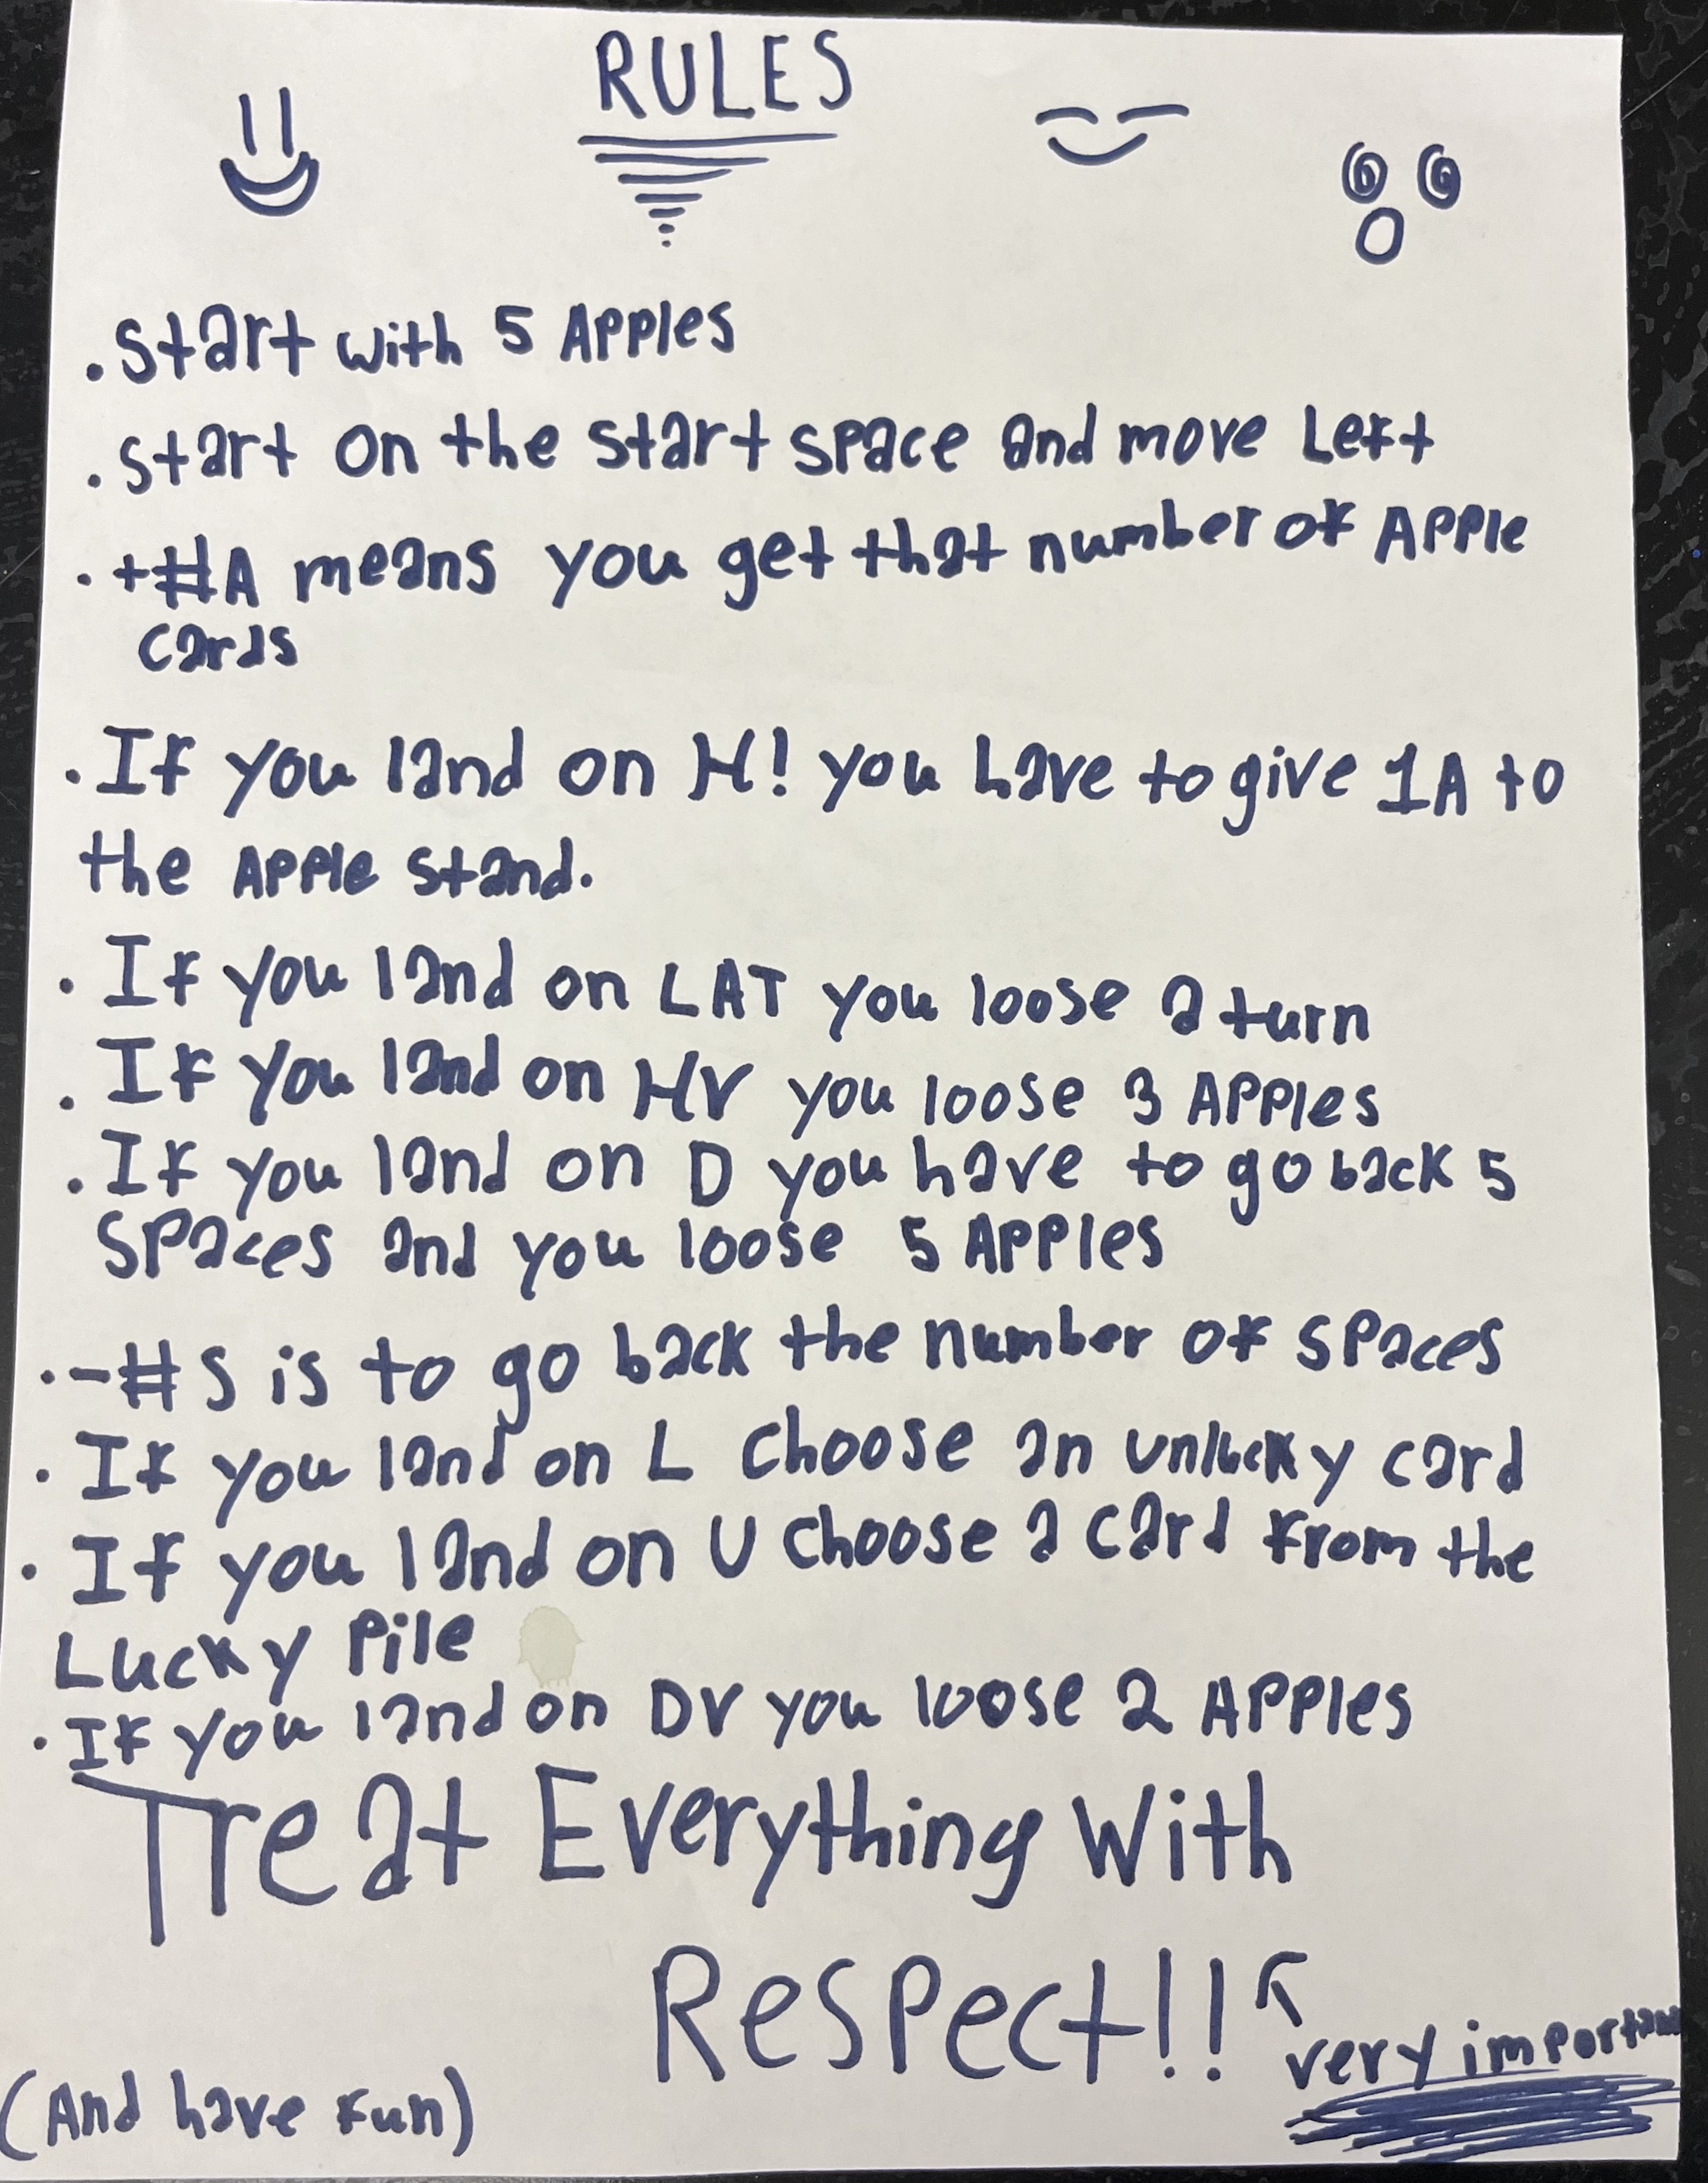 RULES
. Start with 5 Apples
. start on the start space and move Left
. +#A means you get that number of Apple
cards
. If you land on H! you have to give 1A to
the Apple stand.
. If you land on LAT you loose a turn
. If you land on HV you loose 3 Apples
. If you land on D you have to go back 5
spaces and you loose 5 Apples
. -#S is to go back the number of spaces
. If you land on L choose an unlucky card
. If you land on U choose a card from the
Lucky Pile
. If you land on DV you loose 2 Apples
Treat Everything With
Respect!!
very important
(And have fun)